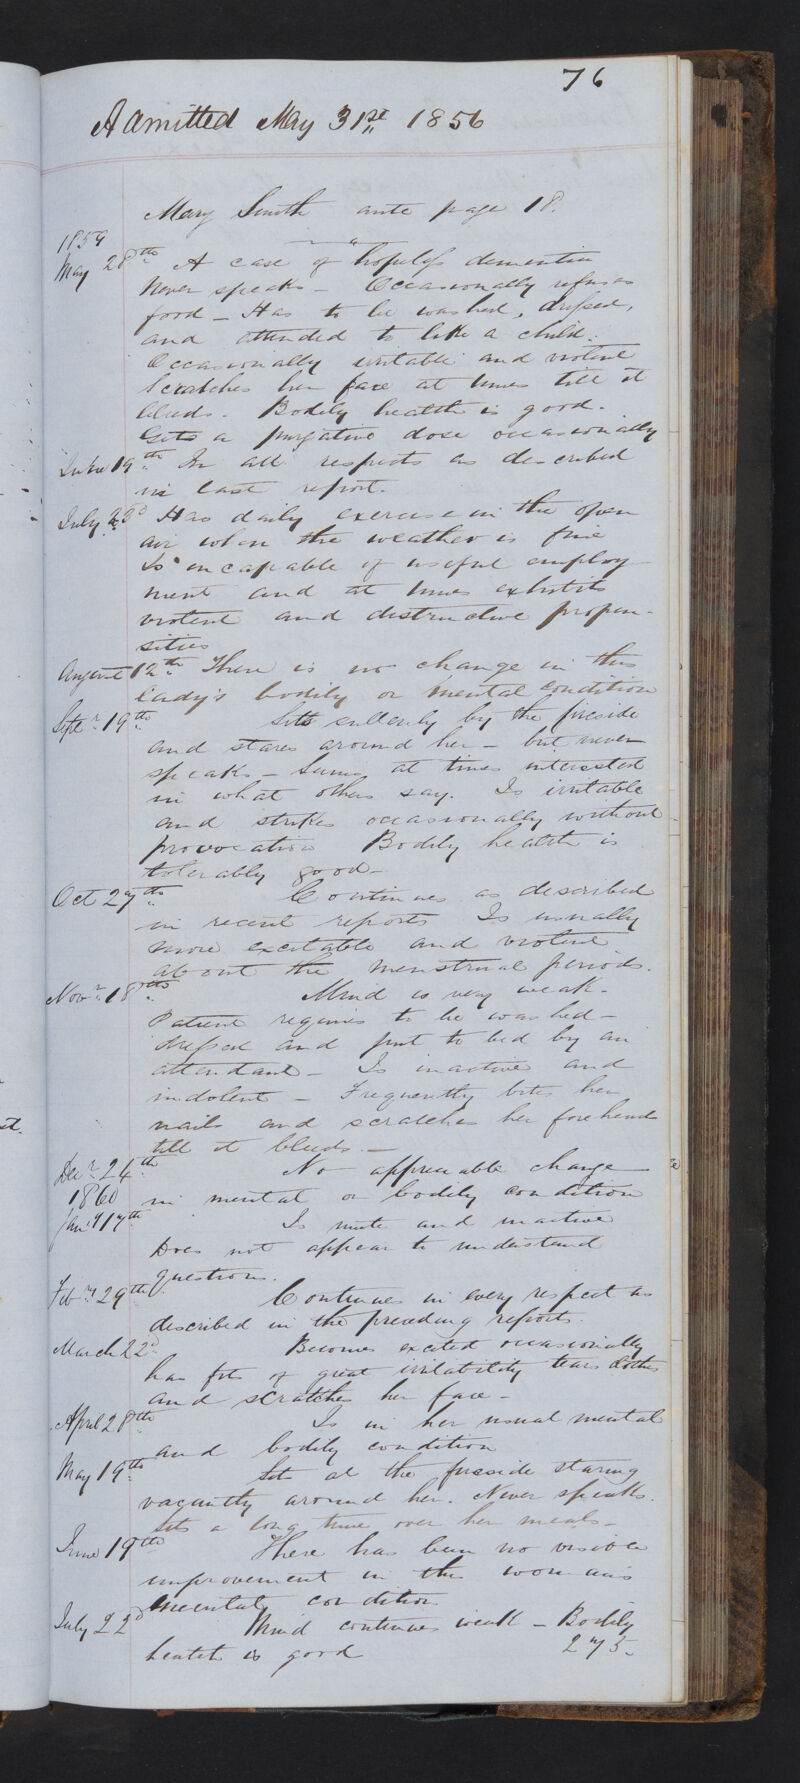 76
Admitted May 31st 1856
Mary Smith ante page 18.
1859
May 28th A case of hopeless dementia
Never speaks - Occasionally refuses
food - Has to be washed, dressed,
and attended to like a child.
Occasionally irritable and violent
Scratches her face at times till it
bleeds. Bodily health is good.
Gets a purgative dose occasionally
June 19th In all respects as described
in last report.
July 23d Has daily exercise in the open
air when the weather is fine
Is incapable of useful employ
ment and at times exhibits
violent and destructive propen-
sities
August 12th There is no change in this
lady's bodily or mental condition
Septr 19th Sits sullenly by the fireside
and stares around her - but never
speaks - Seems at times interested
in what others say. Is irritable
and strikes occasionally without
provocation Bodily health is
tolerably good -
Oct 27th Continues as described
in recent reports Is usually
more excitable and violent
about the menstrual periods.
Novr 18th Mind is very weak -
Patient requires to be washed -
dressed and put to bed by an
attendant - Is inactive and
indolent - Frequently bites her
nails and scratches her forehead
till it bleeds. -
Decr 24th No appreciable change
1860 in mental or bodily condition
Jany 17th Is mute and inactive
Does not appear to understand
questions.
Feby 29th Continues in every respect as
described in the preceding reports.
March 22d Becomes excited occasionally
has fits of great irritability tears clothes
and scratches her face -
April 28th Is in her usual mental
and bodily condition
May 19th Sits at the fireside staring
vacantly around her. Never speaks.
Sits a long time over her meals -
June 19th There has been no visible
improvement in this woman's
mental condition
July 22d Mind continues weak - Bodily
health is good 275.
st.